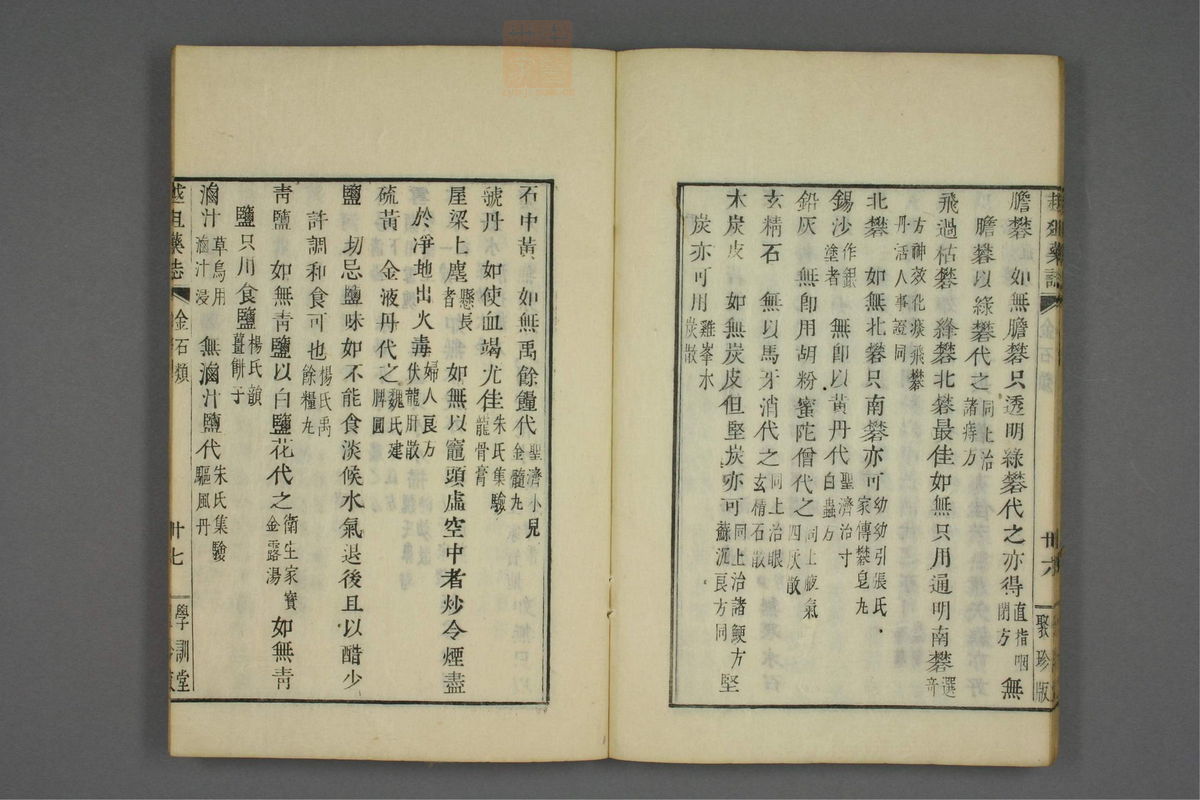 膽礬　如無膽礬只透明綠礬代之亦得直指咽閉方無
膽礬以綠礬代之同上治諸痔方
飛過枯礬　絳礬北礬最佳如無只用通明南礬選奇
方神效化痰飛礬丹活人事證同
北礬　如無北礬只南礬亦可幼幼引張氏家傳礬皂丸
錫沙作銀塗者　無卽以黃丹代聖濟治寸白蟲方
鉛灰　無卽用胡粉蜜陀僧代之同上疲氣四灰散
玄精石　無以馬牙消代之同上治眼玄精石散
木炭皮　如無炭皮但堅炭亦可同上治諸鯁方堅
炭亦可用雞峯水炭散
廿六
聚珍版
石中黃　如無禹餘糧代聖濟小兒金髓丸
虢丹　如使血竭尤佳朱氏集驗龍骨膏
屋梁上塵懸長者　如無以竈頭虛空中者炒令煙盡
於凈地出火毒婦人良方伏龍肝散
硫黃　金液丹代之魏氏建脾圓
鹽　切忌鹽味如不能食淡候水氣退後且以醋少
許調和食可也楊氏禹餘糧丸
靑鹽　如無靑鹽以白鹽花代之衛生家寶金露湯如無靑
鹽只用食鹽楊氏韻薑餠子
滷汁草烏用滷汁浸　無滷汁鹽代朱氏集驗驅風丹
藥誌　金石類
廿七
學訓堂